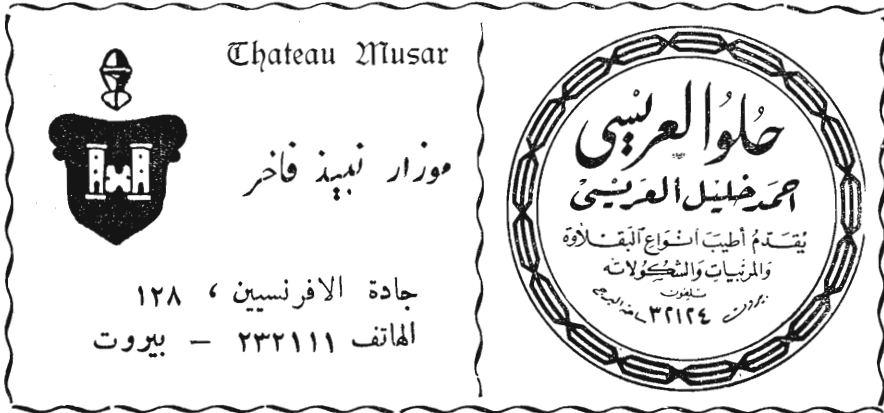 Chateau Musar
موزار نبيذ فاخر
جادة الافرنسيين ، ١٢٨
الهاتف ٢٣٢١١١ – بيروت
حلو العريسي
احمد خليل العريسي
يُقدّمُ أطيبَ أنوَاع البَقلاَوة
وَالمرَبّيات وَالشكُولاته
تلفون
بيروت ٣٢١٢٤